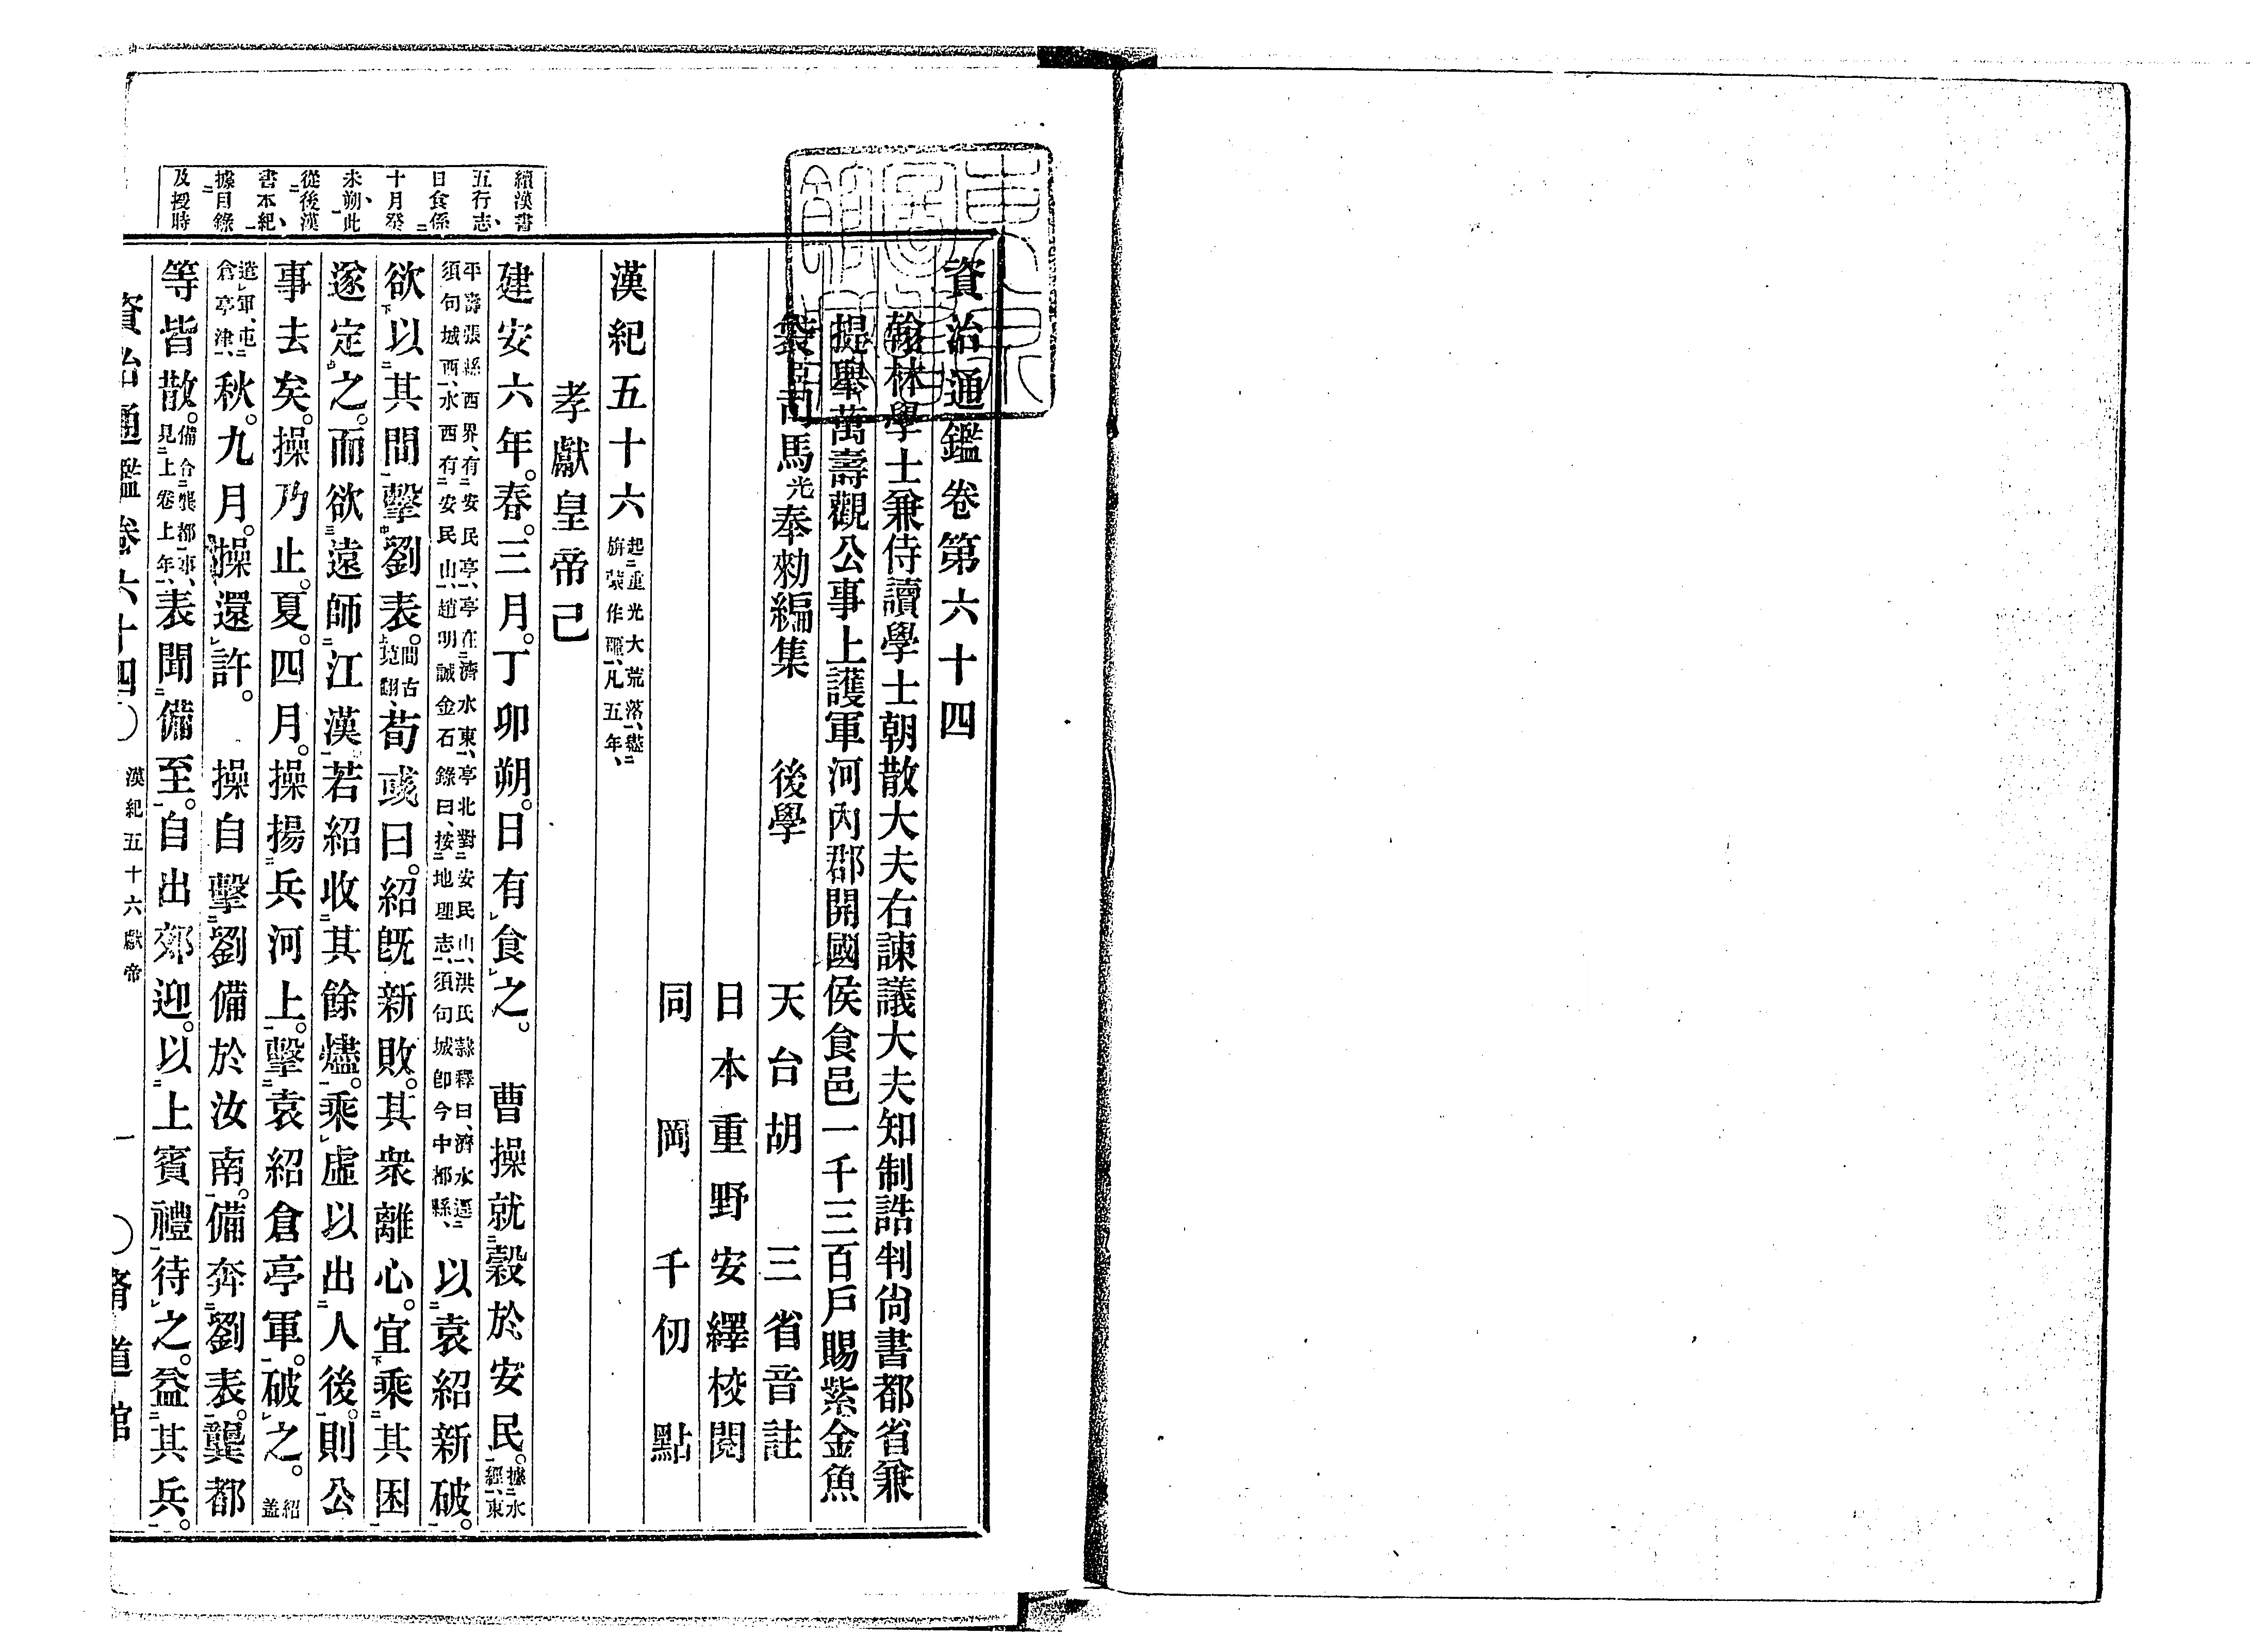 資治通鑑卷第六十四
翰林學士兼侍讀學士朝散大夫右諫議大夫知制誥判尚書都省兼
提舉萬壽觀公事上護軍河內郡開國侯食邑一千三百戶賜紫金魚
袋臣司馬光奉勅編集　後學　天台胡　三省音註
日本重野安繹校閱
同　岡　千仞　點
漢紀五十六起重光大荒落盡旃蒙作噩、凡五年、
孝獻皇帝己
建安六年。春。三月。丁卯朔。日有食之。　曹操就穀於安民。據水經、東
平壽張縣西界、有安民亭、亭在濟水東、亭北對安民山、洪氏隷釋曰、濟水逕須句城西、水西有安民山、趙明誠金石錄曰、按地理志、須句城卽今中都縣、以袁紹新破。
欲以其間擊劉表。間古莧翻、荀彧曰。紹旣新敗。其衆離心。宜乘其困
遂定之。而欲遠師江漢。若紹收其餘燼。乘虛以出人後。則公
事去矣。操乃止。夏。四月。操揚兵河上。擊袁紹倉亭軍。破之。紹蓋
遣軍、屯倉亭津、秋。九月。操還許。　操自擊劉備於汝南。備奔劉表。龔都
等皆散。備合龔都事、見上卷上年、表聞備至。自出郊迎。以上賓禮待之。益其兵。
資治通鑑卷六十四　漢紀五十六獻帝　一
續漢書
五行志、
日食係
十月癸
未朔、此
從後漢
書本紀、
據目錄
及授時